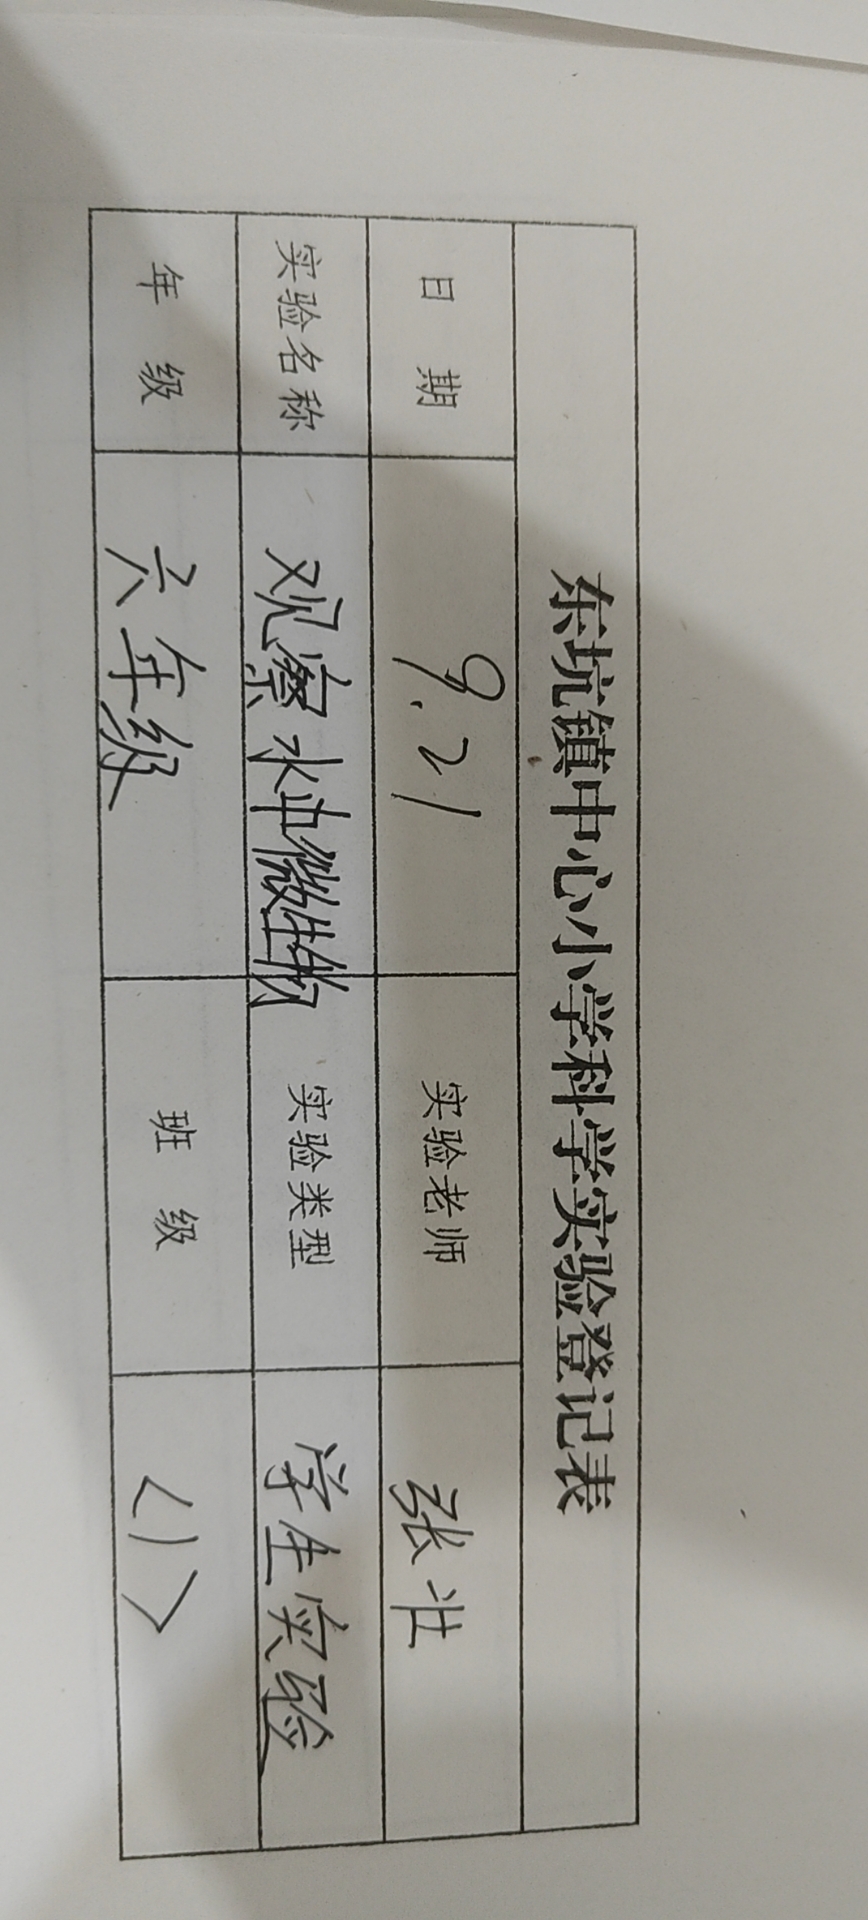 东坑镇中心小学科学实验登记表
日 期 9.21 实验老师 张壮
实验名称 观察水中微生物 实验类型 学生实验
年 级 六年级 班 级 〈1〉